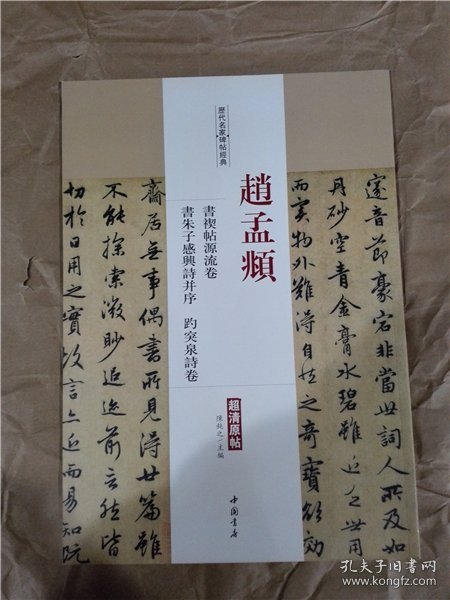 邃音節豪宕非當世詞人所及如
丹砂空青金膏水碧雖近乏世用
而實物外難得自然之奇寶欲效
歷代名家碑帖經典
趙孟頫
書禊帖源流卷
書朱子感興詩并序 趵突泉詩卷
超清原帖
陳鈍之/主編
中国書店
齋居無事偶書所見得廿篇雖
不能探索微眇追迹前言然皆
切於日用之實故言亦近而易知
孔夫子旧书网
www.kongfz.com